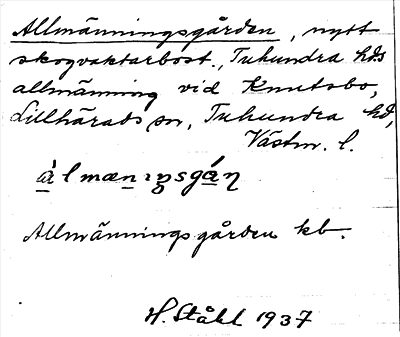 Allmänningsgården, nytt
skogvaktarbost., Tuhundra hds
allmänning vid Knutsbo,
Lillhärads sn, Tuhundra hd,
Västm. l.
àlmænıŋsgáɳ
Allmänningsgården kb.
H. Ståhl 1937